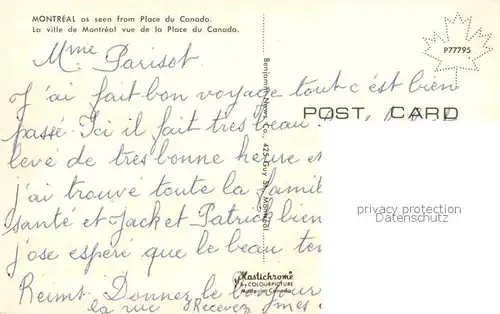 MONTRÉAL as seen from Place du Canada.
La ville de Montréal vue de la Place du Canada.
P77795
Mme Parisot.
J'ai fait bon voyage tout c'ést bien
POST CARD
passé. Ici il fait tres beau
levé de tres bonne heure et
j'ai trouvé toute la famil
santé et Jacket Patrick bien
j'ose esperé que le beau ten
Reims. Donnez le bonjour
la rue Recevez mes
Benjamin News Co., 425 Guy St., Montreal
privacy protection
Datenschutz
Plastichrome
by COLOURPICTURE
Made in Canada